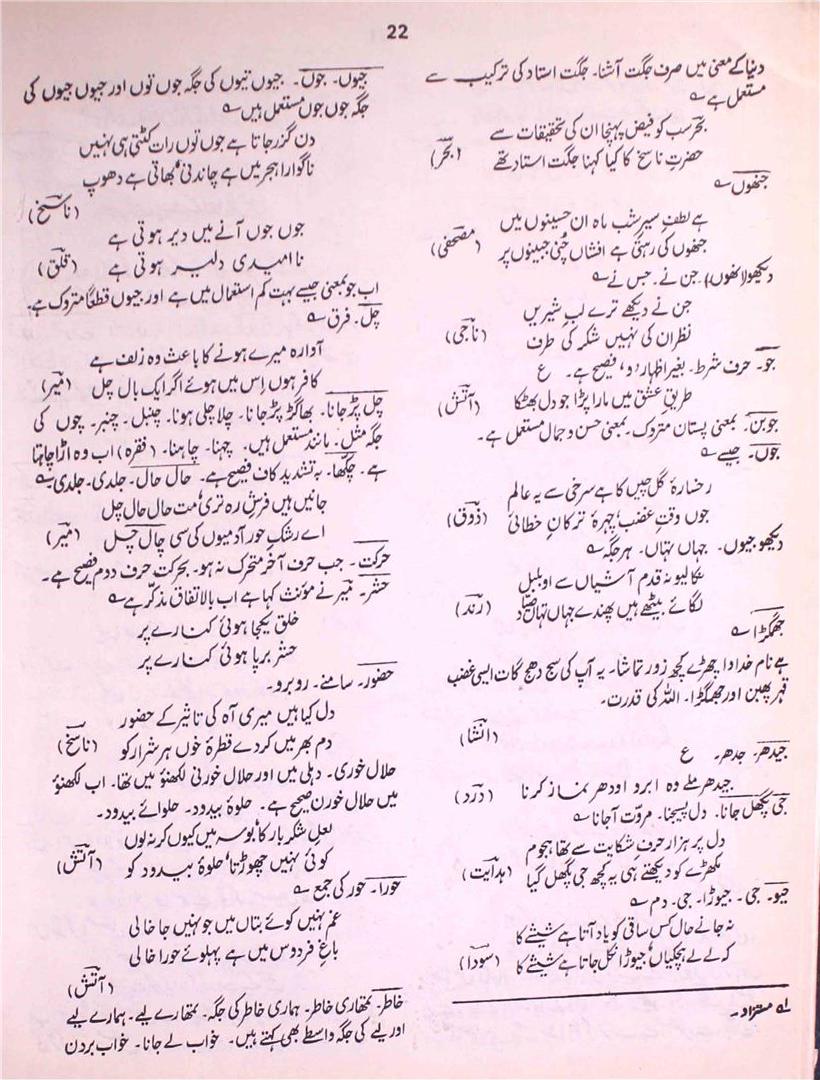 22
دنیا کے معنی میں صرف جگت آشنا۔ جگت استاد کی ترکیب سے
مستعمل ہے ؎
بحر سب کو فیض پہنچا ان کی تحقیقات سے
حضرتِ ناسخ کا کیا کہنا جگت استاد تھے (بحر)
جنھوں ؎
ہے لطفِ سیرِ شب ماہ ان حسینوں میں
جنھوں کی رہتی ہے افشاں چُنی جبینوں پر (مصحفی)
دیکھو لاکھوں)۔ جن نے۔ جس نے ؎
جن نے دیکھے ترے لبِ شیریں
نظر ان کی نہیں شکر کی طرف (ناجی)
جو۔ حرف شرط۔ بغیر اظہار 'و' فصیح ہے۔ ع
طریقِ عشق میں مارا پڑا جو دل بھٹکا (آتش)
جوبن۔ بمعنی پستان متروک۔ بمعنی حسن و جمال مستعمل ہے۔
جوں۔ جیسے ؎
رخسارۂ گل چیں کا ہے سرخی سے یہ عالم
جوں وقتِ غضب چہرۂ ترکانِ خطائی (ذوق)
دیکھو جیوں۔ جہاں تہاں۔ ہر جگہ ؎
نکالیو نہ قدم آشیاں سے او بلبل
لگائے بیٹھے ہیں پھندے جہاں تہاں صیّاد (رند)
جھمگڑا ؎
ہے نام خدا وا چھڑے کچھ زور تماشا۔ یہ آپ کی سج دھج گات ایسی غضب
قہر پھبن اور جھمگڑا۔ اللہ کی قدرت۔
(انشا)
جیدھر۔ جدھر۔ ع
جیدھر ملے وہ ابرو اودھر نماز کرنا (درد)
جی پگھل جانا۔ دل پسیجنا۔ مروّت آجانا ؎
دل پر ہزار حرفِ شکایت سے تھا ہجوم
مکھڑے کو دیکھتے ہی یہ کچھ جی پگھل گیا (ہدایت)
جیو۔ جی۔ جیوڑا۔ جی۔ دم ؎
نہ جانے حال کس ساقی کو یاد آتا ہے شیشے کا
کہ لے لے ہچکیاں' جیوڑا نکل جاتا ہے شیشے کا (سودا)
لہ مستزاد۔
جیوں۔ جوں۔ جیوں تیوں کی جگہ جوں توں اور جیوں جیوں کی
جگہ جوں جوں مستعمل ہیں ؎
دن گزر جاتا ہے جوں توں رات کٹتی ہی نہیں
ناگوارا ہجر میں ہے چاندنی' بھاتی ہے دھوپ
(ناسخ)
جوں جوں آنے میں دیر ہوتی ہے
نا امیدی دلیر ہوتی ہے (قلق)
اب جو بمعنی جیسے بہت کم استعمال میں ہے اور جیوں قطعاً متروک ہے۔
چل۔ فرق ؎
آوارہ میرے ہونے کا باعث وہ زلف ہے
کافر ہوں اِس میں ہوئے اگر ایک بال چل (میر)
چل پڑ جانا۔ بھاگڑ پڑ جانا۔ چلا چلی ہونا۔ چنبل۔ چنبر۔ چوں کی
جگہ مثل۔ مانند مستعمل ہیں۔ چہنا۔ چاہنا۔ (فقرہ) اب وہ اڑا چاہتا
ہے۔ چکھا۔ بہ تشدید کاف فصیح ہے۔ حال حال۔ جلدی۔ جلدی۔ ؎
جانیں ہیں فرشِ رہ تری' مت حال حال چل
اے رشکِ حور آدمیوں کی سی چال چل (میر)
حرکت۔ جب حرف آخر متحرک نہ ہو۔ بحرکت حرف دوم فصیح ہے۔
حشر۔ میر نے مؤنث کہا ہے اب بالاتفاق مذکّر ہے ؎
خلق یکجا ہوئی کنارے پر
حشر برپا ہوئی کنارے پر
حضور۔ سامنے۔ روبرو۔
دل کیا ہیں میری آہ کی تاثیر کے حضور
دم بھر میں کر دے قطرۂ خوں ہر شرار کو (ناسخ)
حلال خوری۔ دہلی میں اور حلال خورنی لکھنؤ میں تھا۔ اب لکھنؤ
میں حلال خورن صحیح ہے۔ حلوۂ بیدود۔ حلوائے بیدود۔
لعلِ شکر بار کا' بوسہ میں کیوں کر نہ لوں
کوئی نہیں چھوڑتا' حلوۂ بیدود کو (آتش)
حورا۔ حور کی جمع ؎
غم نہیں کوئے بتاں میں جو نہیں جا خالی
باغِ فردوس میں ہے پہلوئے حورا خالی
(آتش)
خاطر۔ تمھاری خاطر۔ ہماری خاطر کی جگہ۔ تمھارے لیے۔ ہمارے لیے
اور لیے کی جگہ واسطے بھی کہتے ہیں۔ خواب لے جانا۔ خواب بردن